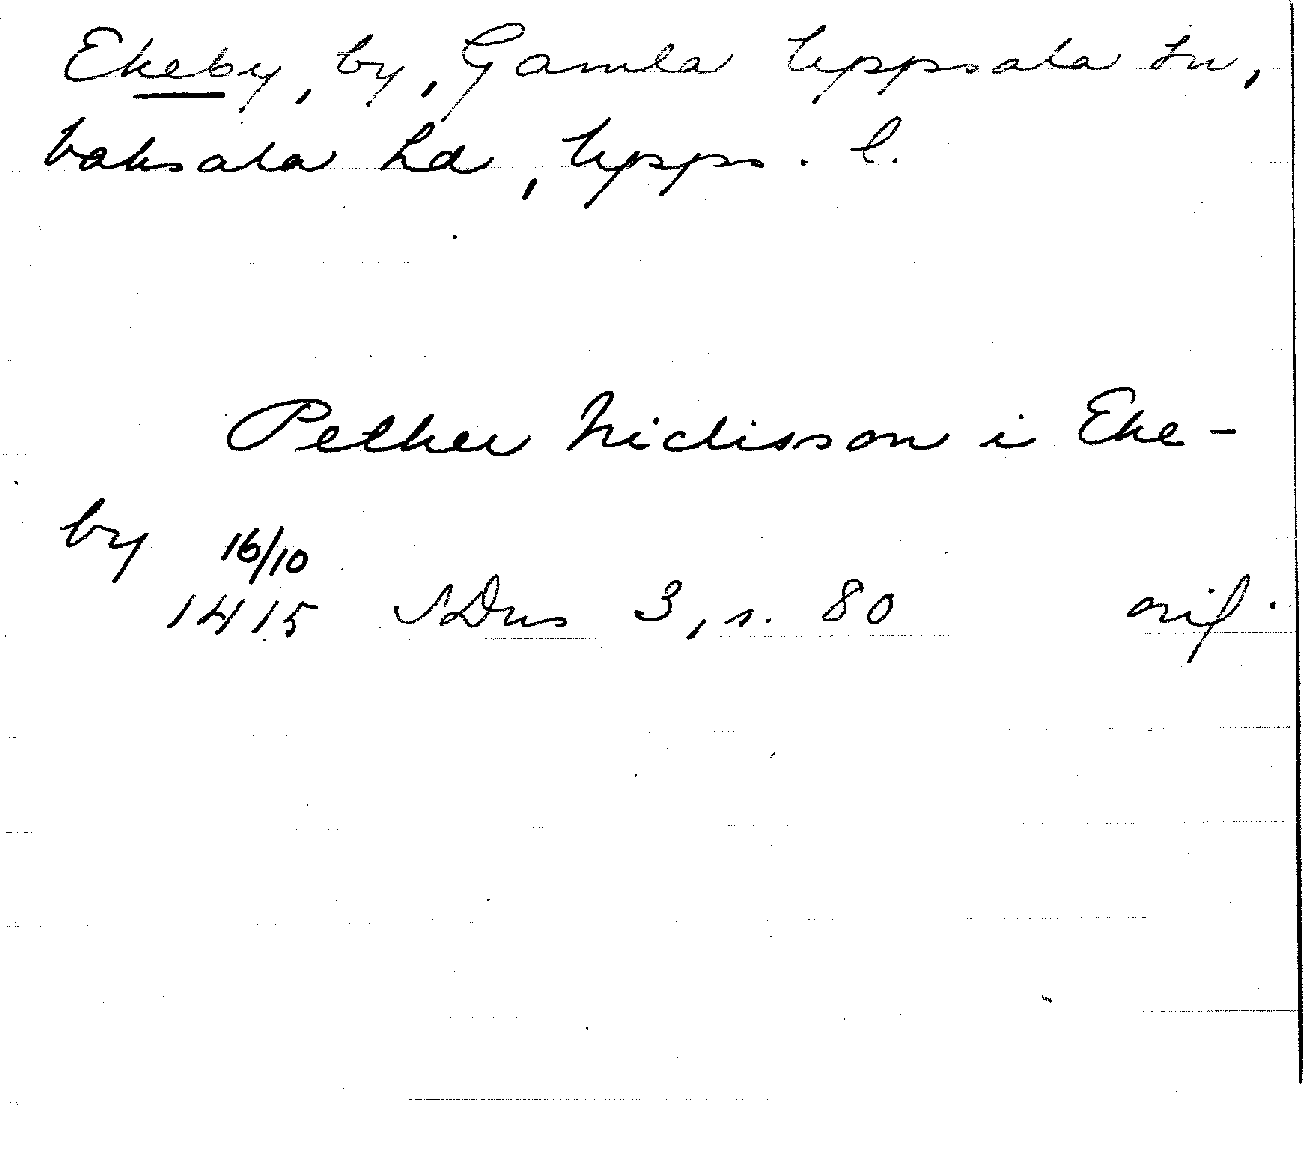 Ekeby, by, Gamla Uppsala sn,
Vaksala hd, Upps. l.
Pether Niclisson i Eke-
by 16/10
1415 SDns 3, s. 80 orif.